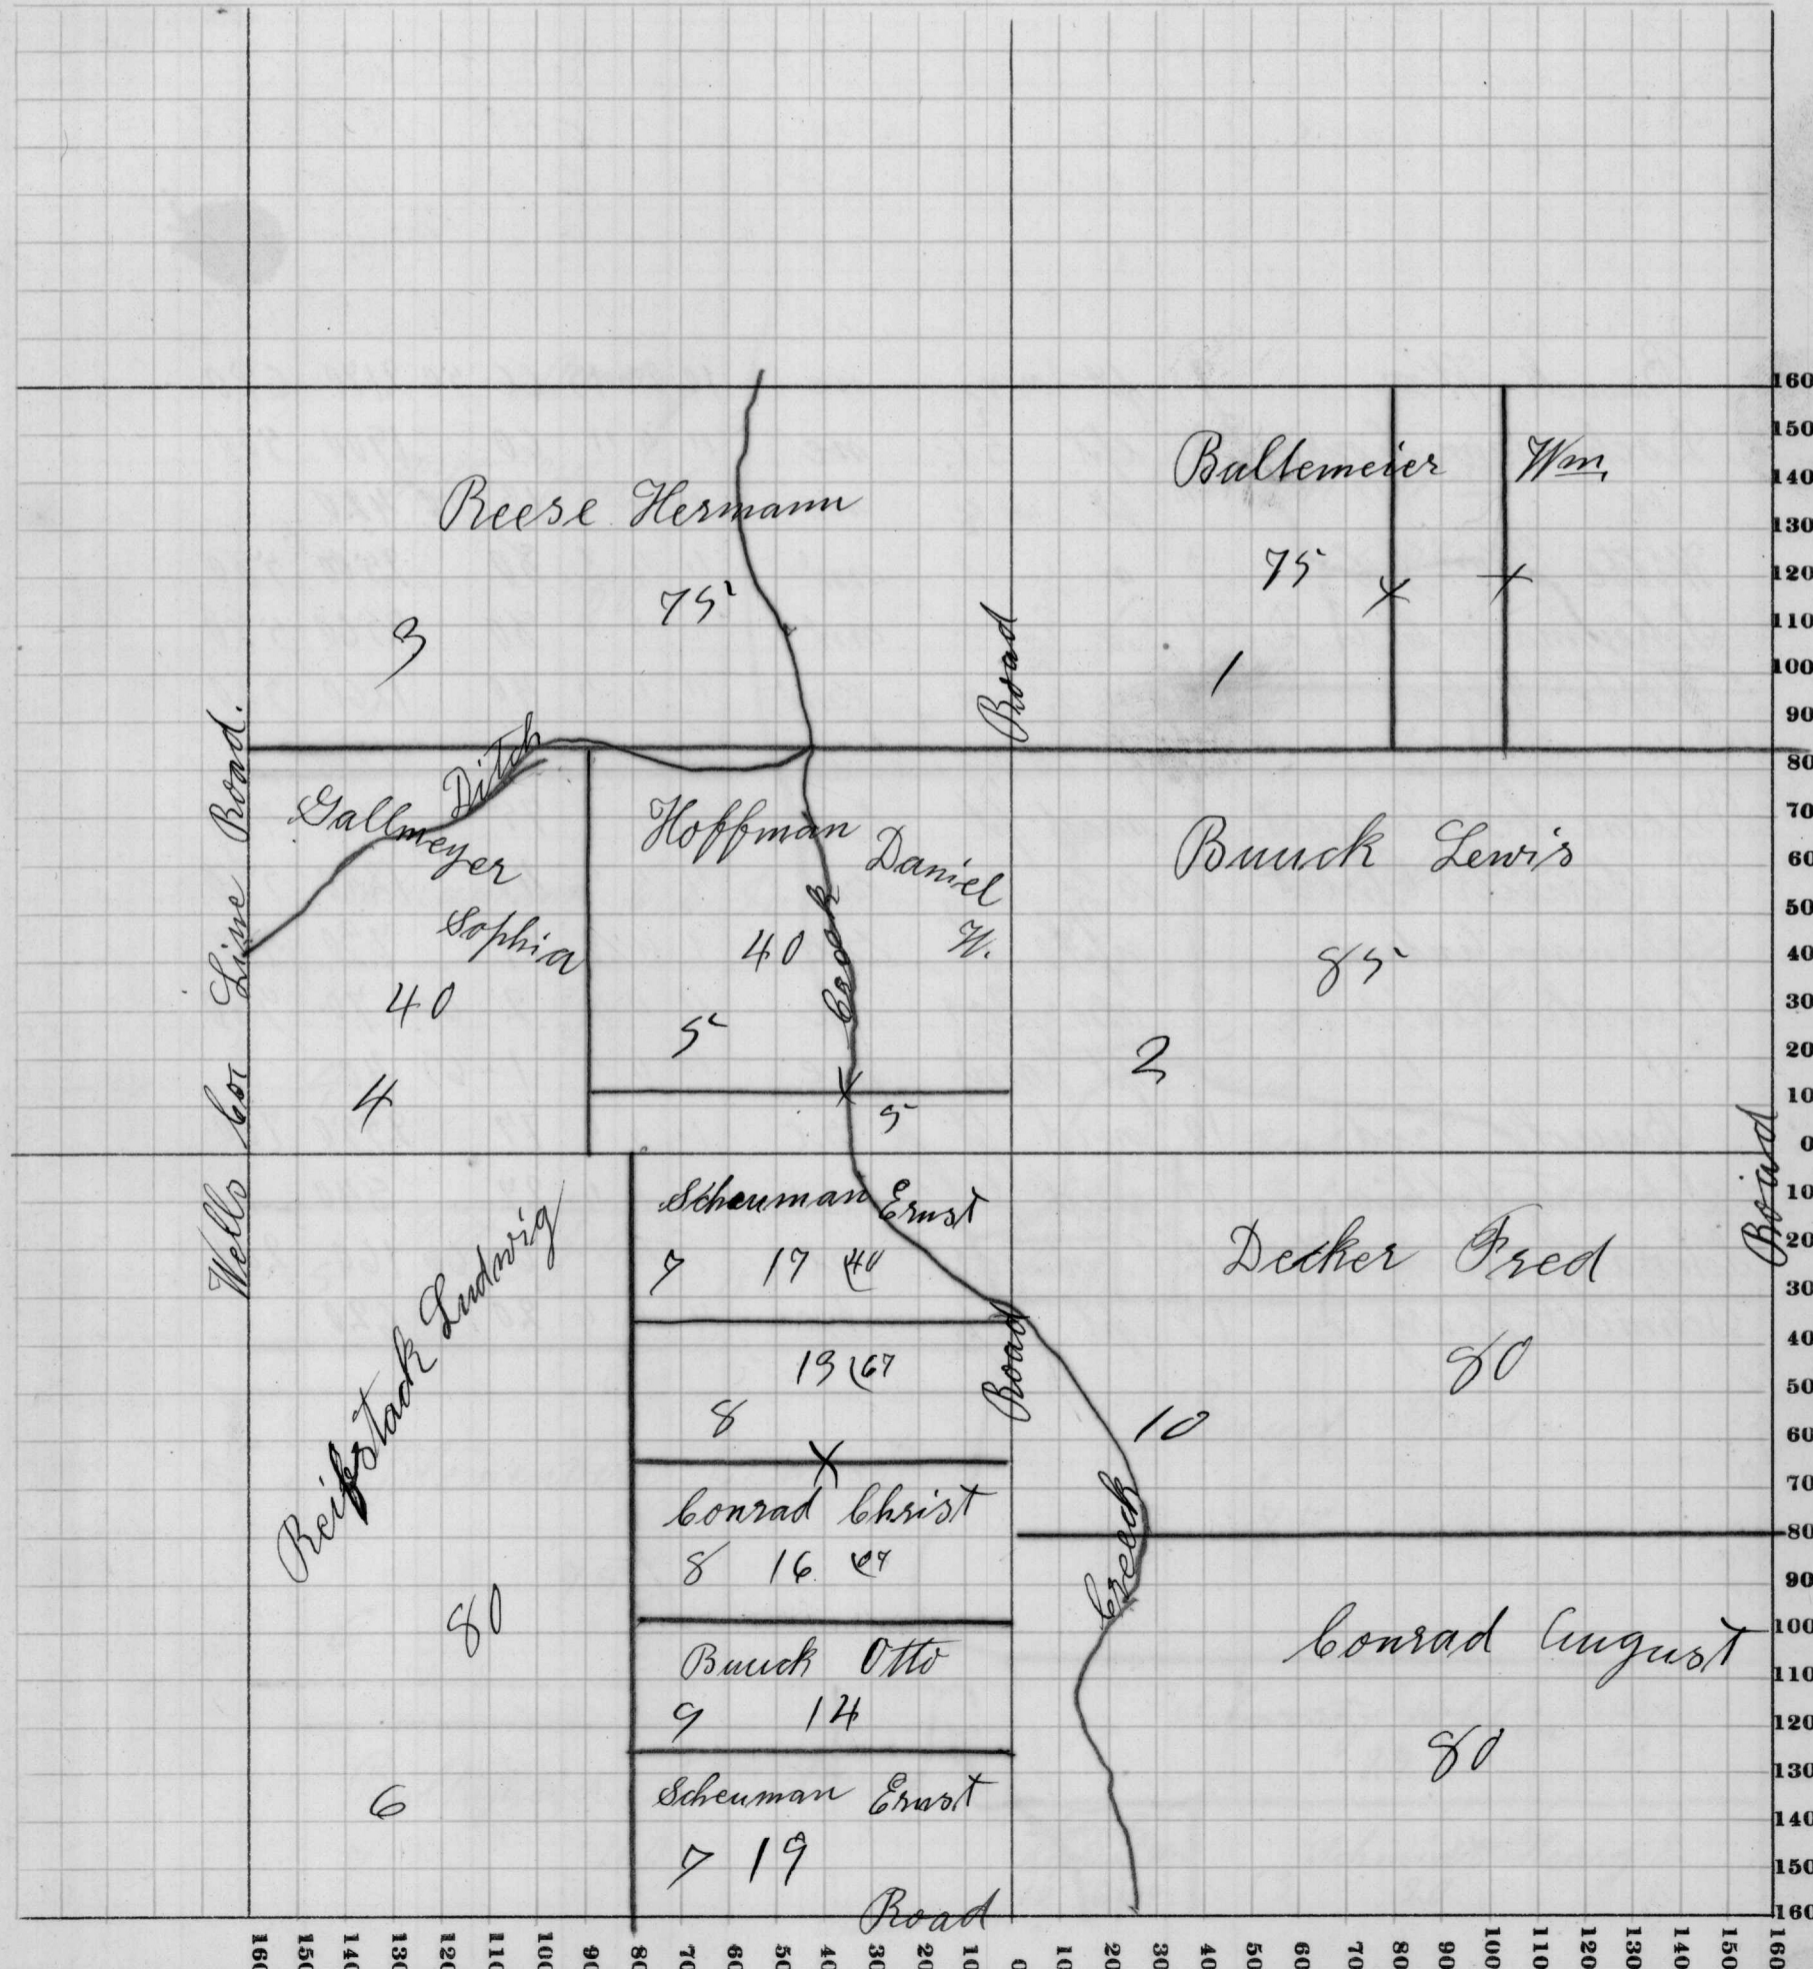 Reese Hermann
75
3
Bultemeier Wm
75
1
Road
Wells Co. Line Road.
Ditch
Gallmeyer
Sophia
40
4
Hoffman Daniel
W.
40
5
Creek
5
Buuck Lewis
85
2
Road
Reifstack Ludwig
80
6
Scheuman Ernst
7 17 (40
13 (67
8
Conrad Christ
8 16 (67
Buuck Otto
9 14
Scheuman Ernst
7 19
Road
Road
Decker Fred
80
10
Creeck
Conrad August
80
160
150
140
130
120
110
100
90
80
70
60
50
40
30
20
10
0
10
20
30
40
50
60
70
80
90
100
110
120
130
140
150
160
160 150 140 130 120 110 100 90 80 70 60 50 40 30 20 10 0 10 20 30 40 50 60 70 80 90 100 110 120 130 140 150 160